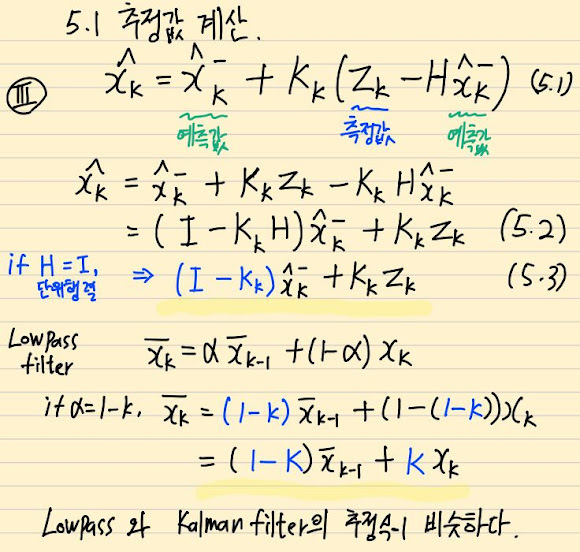 5.1 추정값 계산.
Ⅲ x̂ₖ = x̂ₖ⁻ + Kₖ(Zₖ − Hx̂ₖ⁻) (5.1)
예측값 측정값 예측값
x̂ₖ = x̂ₖ⁻ + KₖZₖ − KₖHx̂ₖ⁻
= (I − KₖH)x̂ₖ⁻ + KₖZₖ (5.2)
if H = I, ⇒ (I − Kₖ)x̂ₖ⁻ + KₖZₖ (5.3)
단위행렬
Low Pass x̄ₖ = αx̄ₖ₋₁ + (1−α)xₖ
filter
if α=1−k, x̄ₖ = (1−k)x̄ₖ₋₁ + (1−(1−k))xₖ
= (1−K)x̄ₖ₋₁ + Kxₖ
Lowpass 와 Kalman filter의 추정식이 비슷하다.